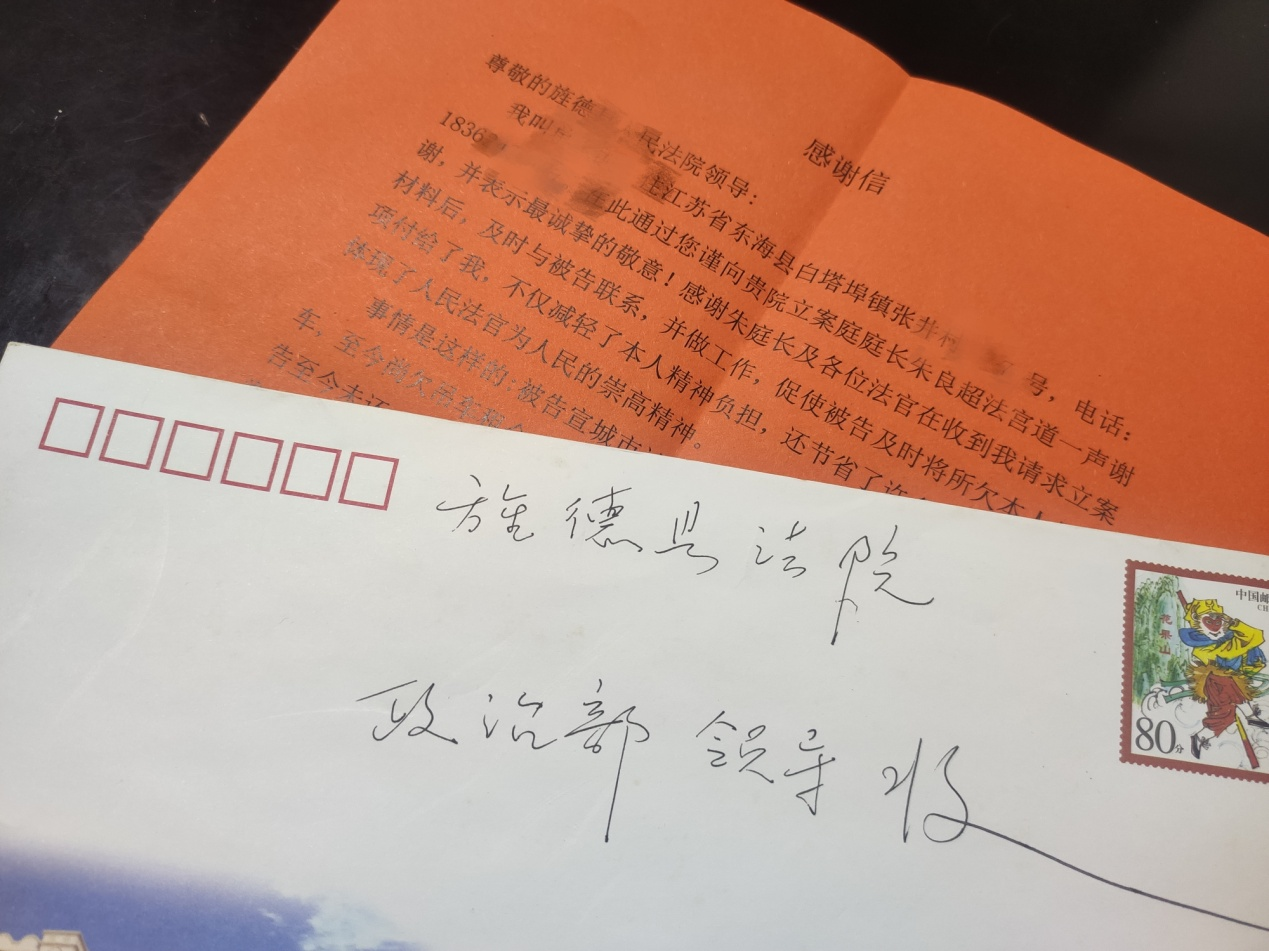 感谢信
尊敬的旌德 民法院领导：
我叫 江苏省东海县白塔埠镇张井村 号，电话：
1836 在此通过您谨向贵院立案庭庭长朱良超法官道一声谢
谢，并表示最诚挚的敬意！感谢朱庭长及各位法官在收到我请求立案
材料后，及时与被告联系，并做工作，促使被告及时将所欠本人
项付给了我，不仅减轻了本人精神负担，还节省了许
体现了人民法官为人民的崇高精神。
事情是这样的：被告宣城市
车，至今尚欠吊车
告至今未还
旌德县法院
政治部领导收
中国邮
CH
花果山
80分